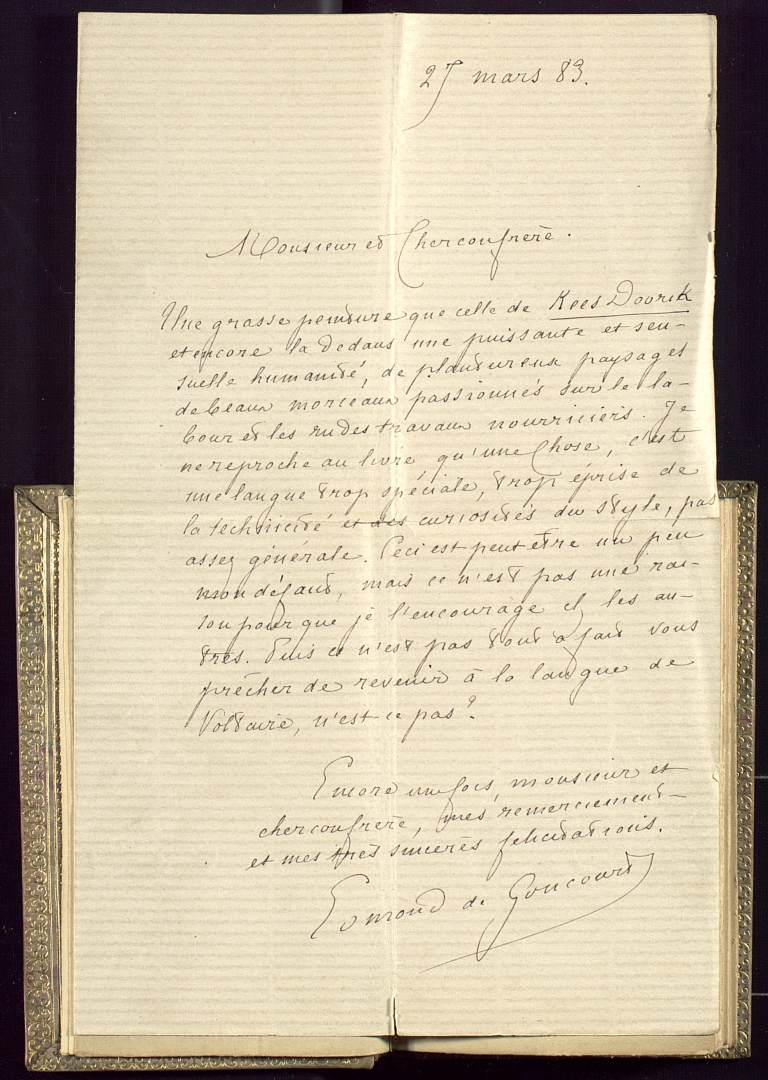 27 mars 83.
Monsieur et Cher confrère.
Une grasse peinture que celle de Kees Doorik
et encore la dedans une puissante et sen-
suelle humanité, de plantureux paysages
de beaux morceaux passionnés sur le la-
bour et les rudes travaux nourriciers. Je
ne reproche au livre qu'une Chose, c'est
une langue trop spéciale, trop éprise de
la technicité et des curiosités du style, pas
assez générale. Ceci est peut être un peu
mon défaut, mais ce n'est pas une rai-
son pour que je l'encourage les au-
tres. Puis ce n'est pas tout à fait vous
prêcher de revenir à la langue de
Voltaire, n'est-ce pas?
Encore une fois, monsieur et
cher confrère, mes remerciements
et mes très sincères felicitations.
Edmond de Goncourt